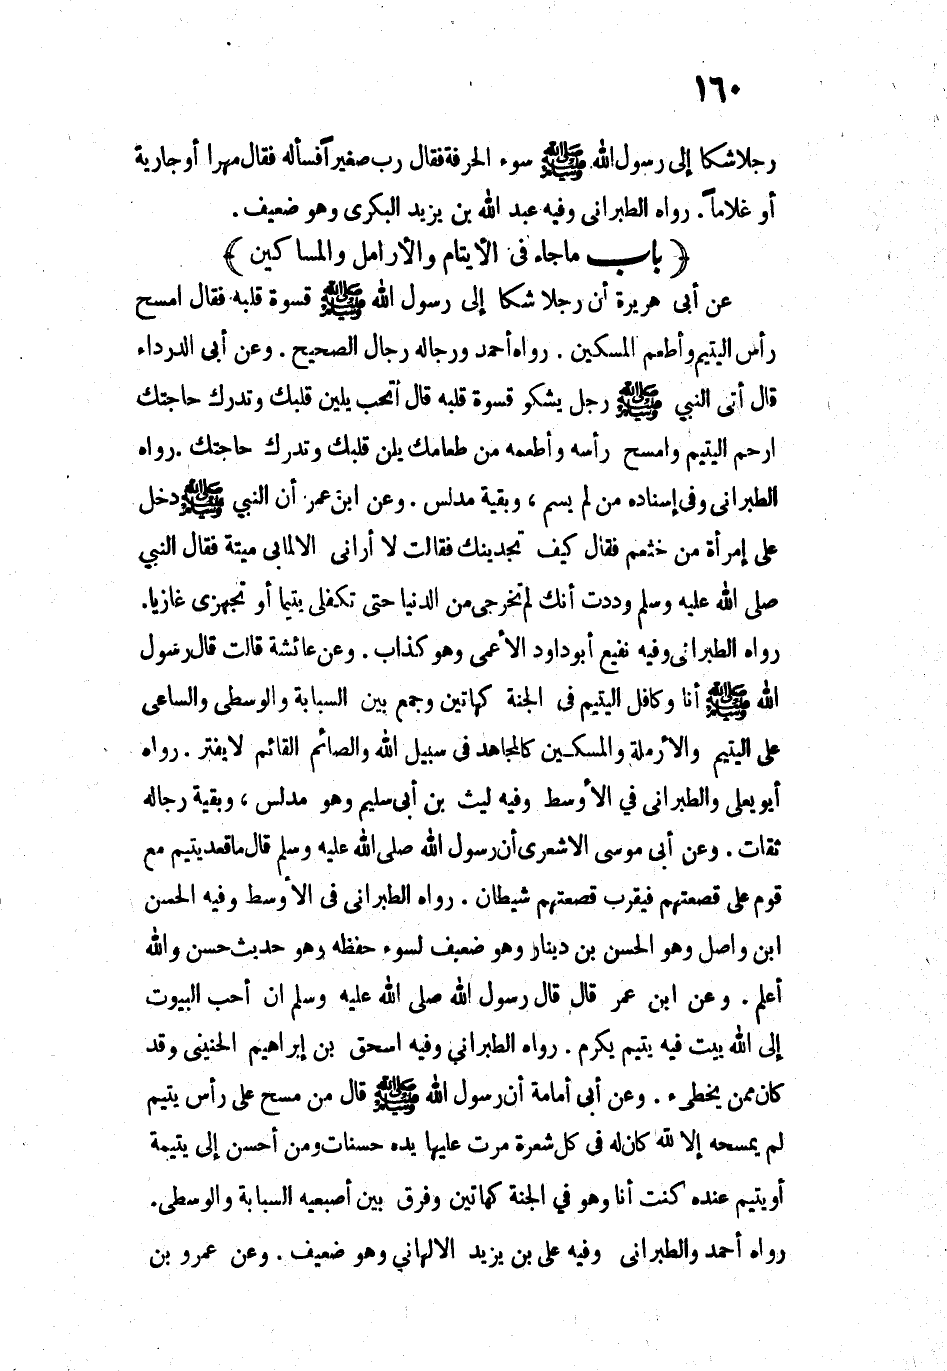 ١٦٠
رجلا شكا إلى رسول الله ﷺ سوء الحرفة فقال رب صغيراً فسأله فقال مهرا أو جارية
أو غلاماً. رواه الطبرانى وفيه عبد الله بن يزيد البكرى وهو ضعيف.
﴿باب ماجاء فى الأيتام والأرامل والمساكين﴾
عن أبى هريرة أن رجلا شكا إلى رسول الله ﷺ قسوة قلبه فقال امسح
رأس اليتيم وأطعم المسكين. رواه أحمد ورجاله رجال الصحيح. وعن أبى الدرداء
قال أتى النبي ﷺ رجل يشكو قسوة قلبه قال أتحب يلين قلبك وتدرك حاجتك
ارحم اليتيم وامسح رأسه وأطعمه من طعامك يلن قلبك وتدرك حاجتك. رواه
الطبرانى وفى إسناده من لم يسم ، وبقية مدلس. وعن ابن عمر أن النبي ﷺ دخل
على إمرأة من خثعم فقال كيف تجدينك فقالت لا أرانى الا لمابى ميتة فقال النبي
صلى الله عليه وسلم وددت أنك لم تخرجى من الدنيا حتى تكفلى يتيما أو تجهزى غازيا.
رواه الطبرانى وفيه نفيع أبو داود الأعمى وهو كذاب. وعن عائشة قالت قال رسول
الله ﷺ أنا وكافل اليتيم فى الجنة كهاتين وجمع بين السبابة والوسطى والساعى
على اليتيم والأرملة والمسكين كالمجاهد فى سبيل الله والصائم القائم لا يفتر. رواه
أبو يعلى والطبرانى في الأوسط وفيه ليث بن أبى سليم وهو مدلس ، وبقية رجاله
ثقات. وعن أبى موسى الاشعرى أن رسول الله صلى الله عليه وسلم قال ما قعد يتيم مع
قوم على قصعتهم فيقرب قصعتهم شيطان. رواه الطبرانى فى الأوسط وفيه الحسن
ابن واصل وهو الحسن بن دينار وهو ضعيف لسوء حفظه وهو حديث حسن والله
أعلم. وعن ابن عمر قال قال رسول الله صلى الله عليه وسلم ان أحب البيوت
إلى الله بيت فيه يتيم يكرم. رواه الطبراني وفيه اسحق بن إبراهيم الحنينى وقد
كان ممن يخطىء. وعن أبى أمامة أن رسول الله ﷺ قال من مسح على رأس يتيم
لم يمسحه إلا لله كان له فى كل شعرة مرت عليها يده حسنات ومن أحسن إلى يتيمة
أو يتيم عنده كنت أنا وهو في الجنة كهاتين وفرق بين أصبعيه السبابة والوسطى.
رواه أحمد والطبرانى وفيه على بن يزيد الالهاني وهو ضعيف. وعن عمرو بن